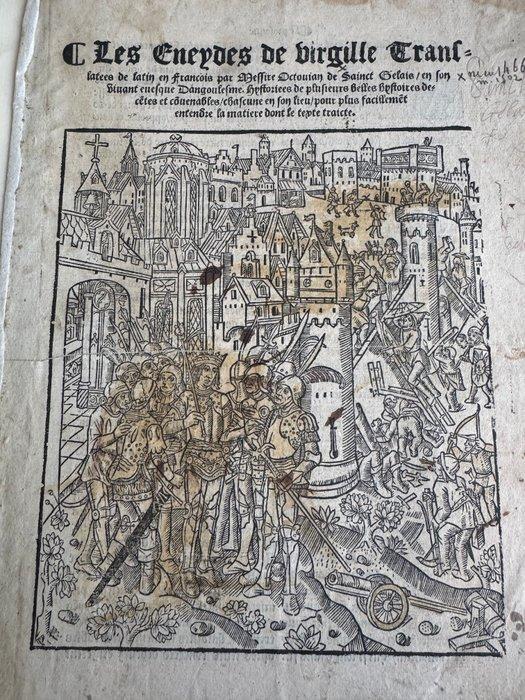 ❡ Les Eneydes de virgille Trans⸗
latees de latin en francois par Messire Octouian de Sainct Gelais / en son
viuant euesque Dangoulesme. hystoriees de plusieurs belles hystoires de⸗
cētes et cōuenables / chascune en son lieu / pour plus facillemēt
entendre la matiere dont le texte traicte.